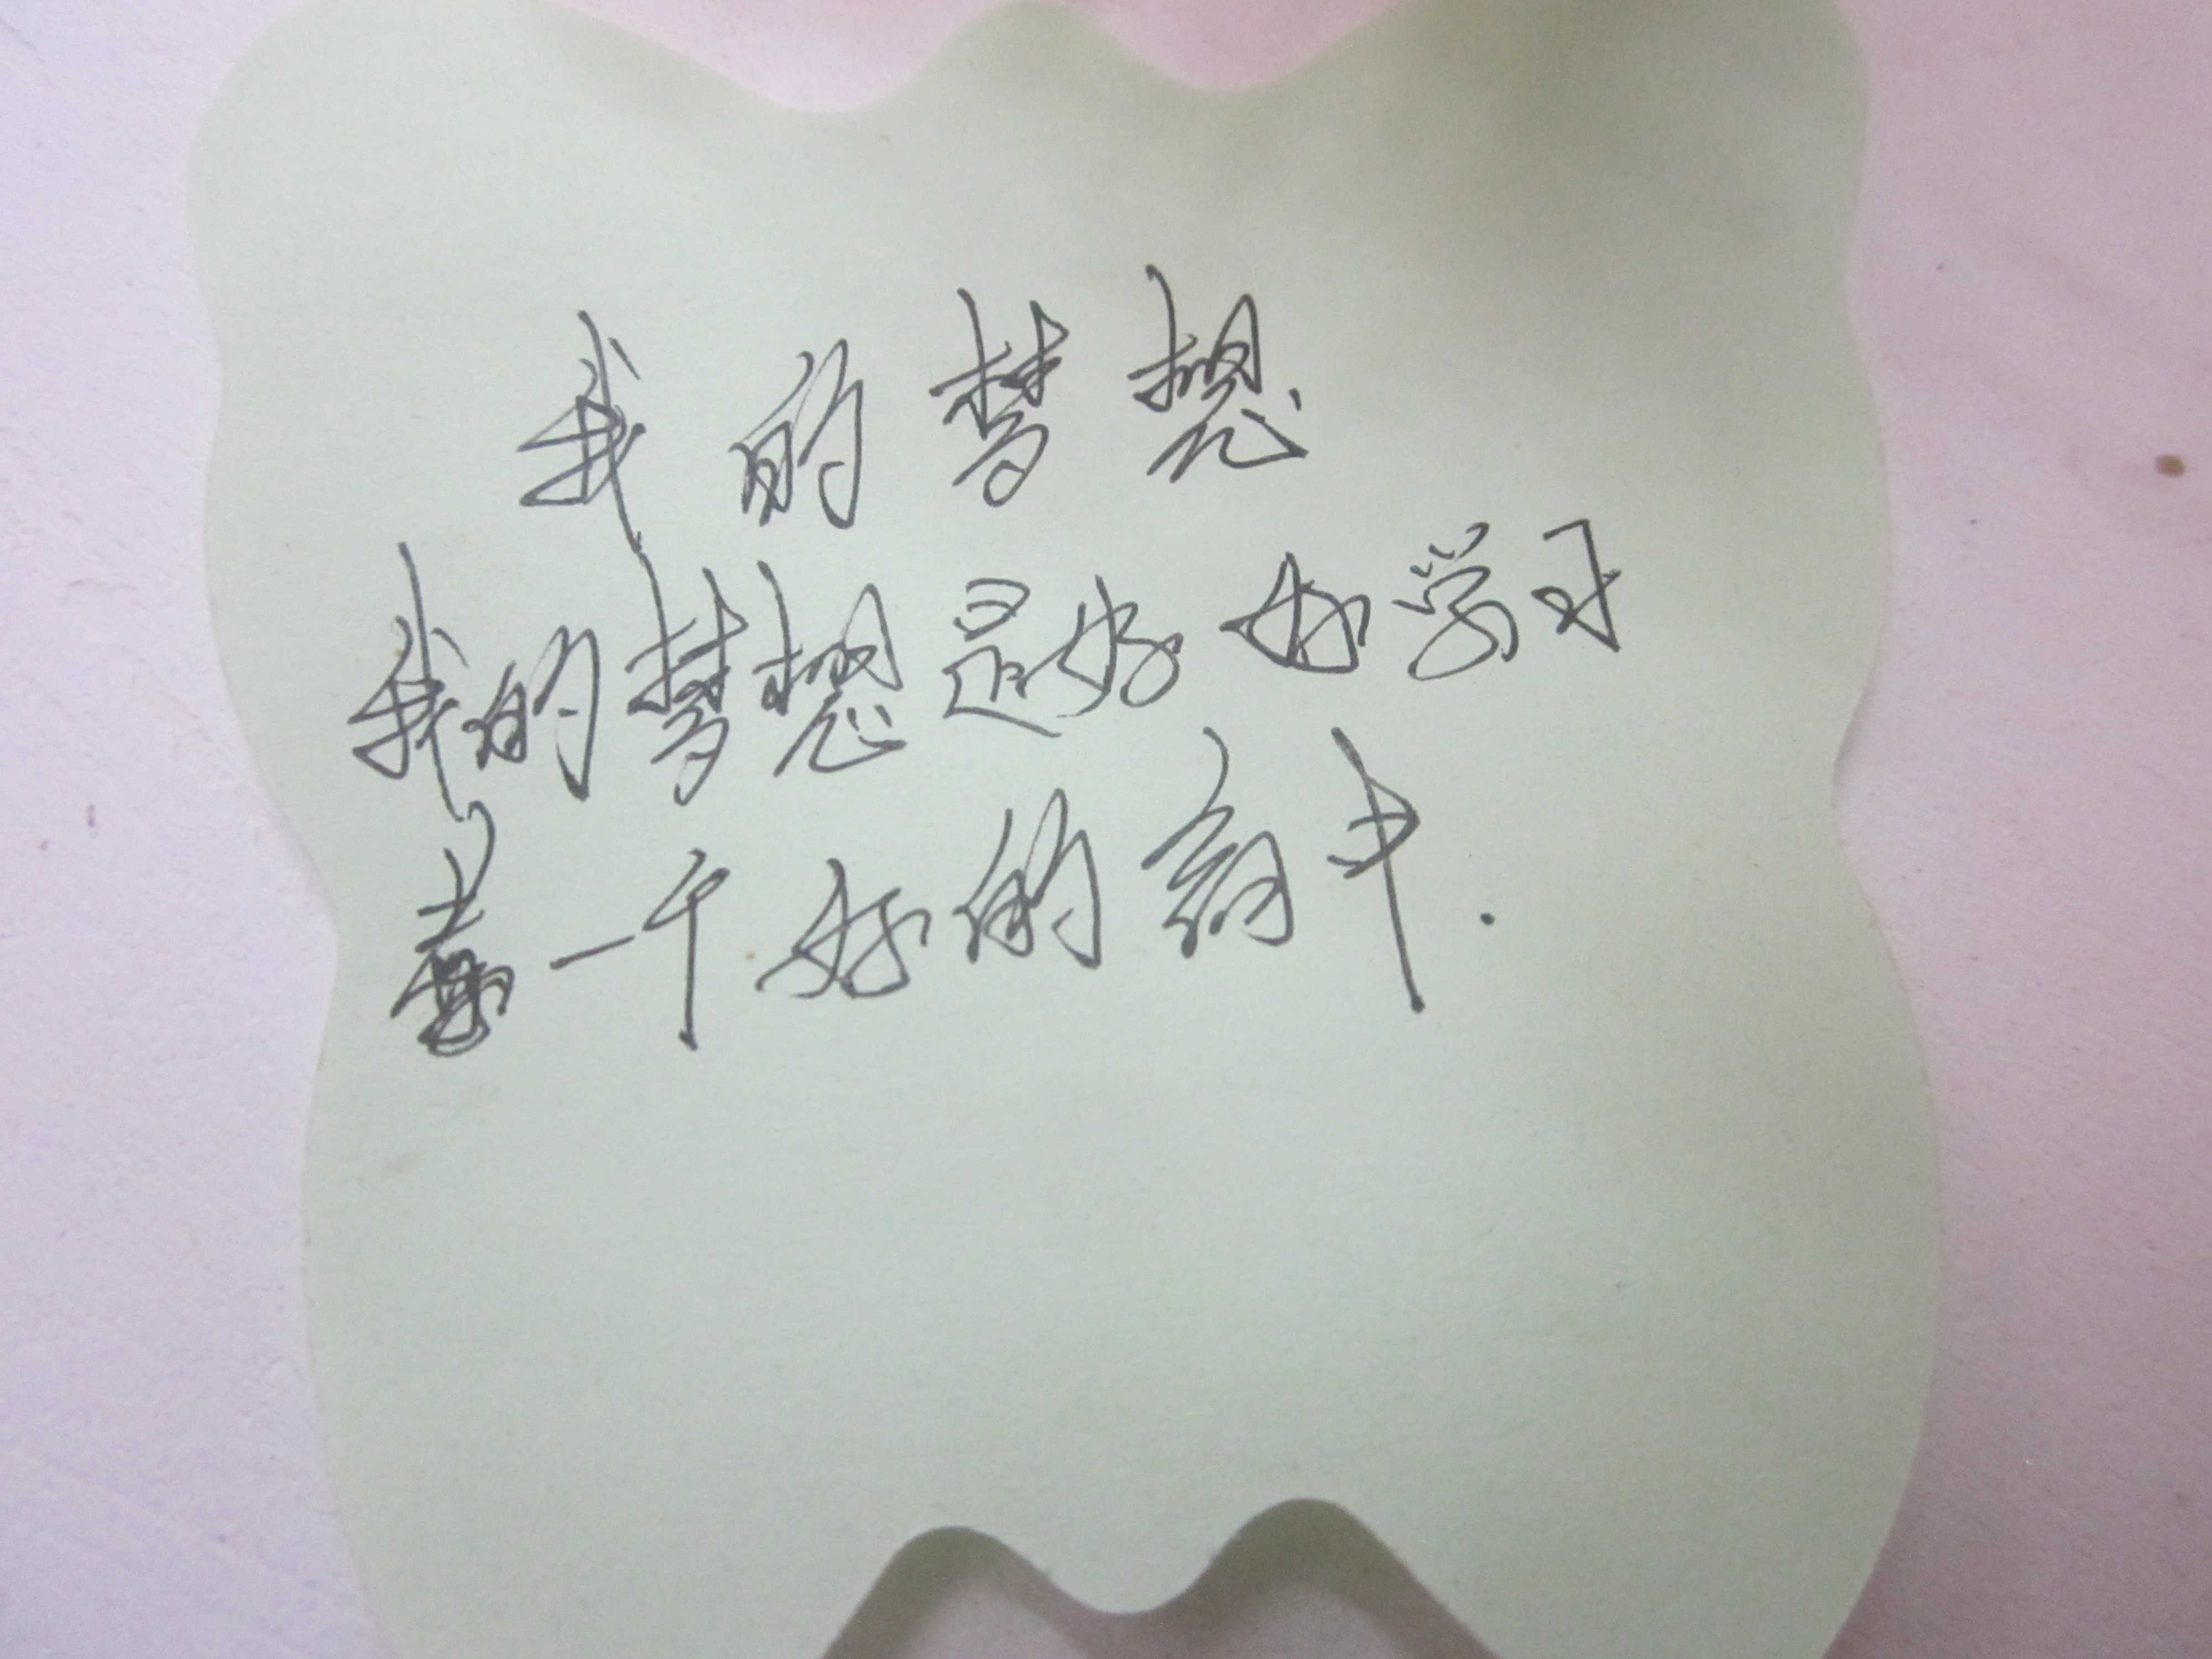 我的梦想
我的梦想是好好学习
考一个好的高中.